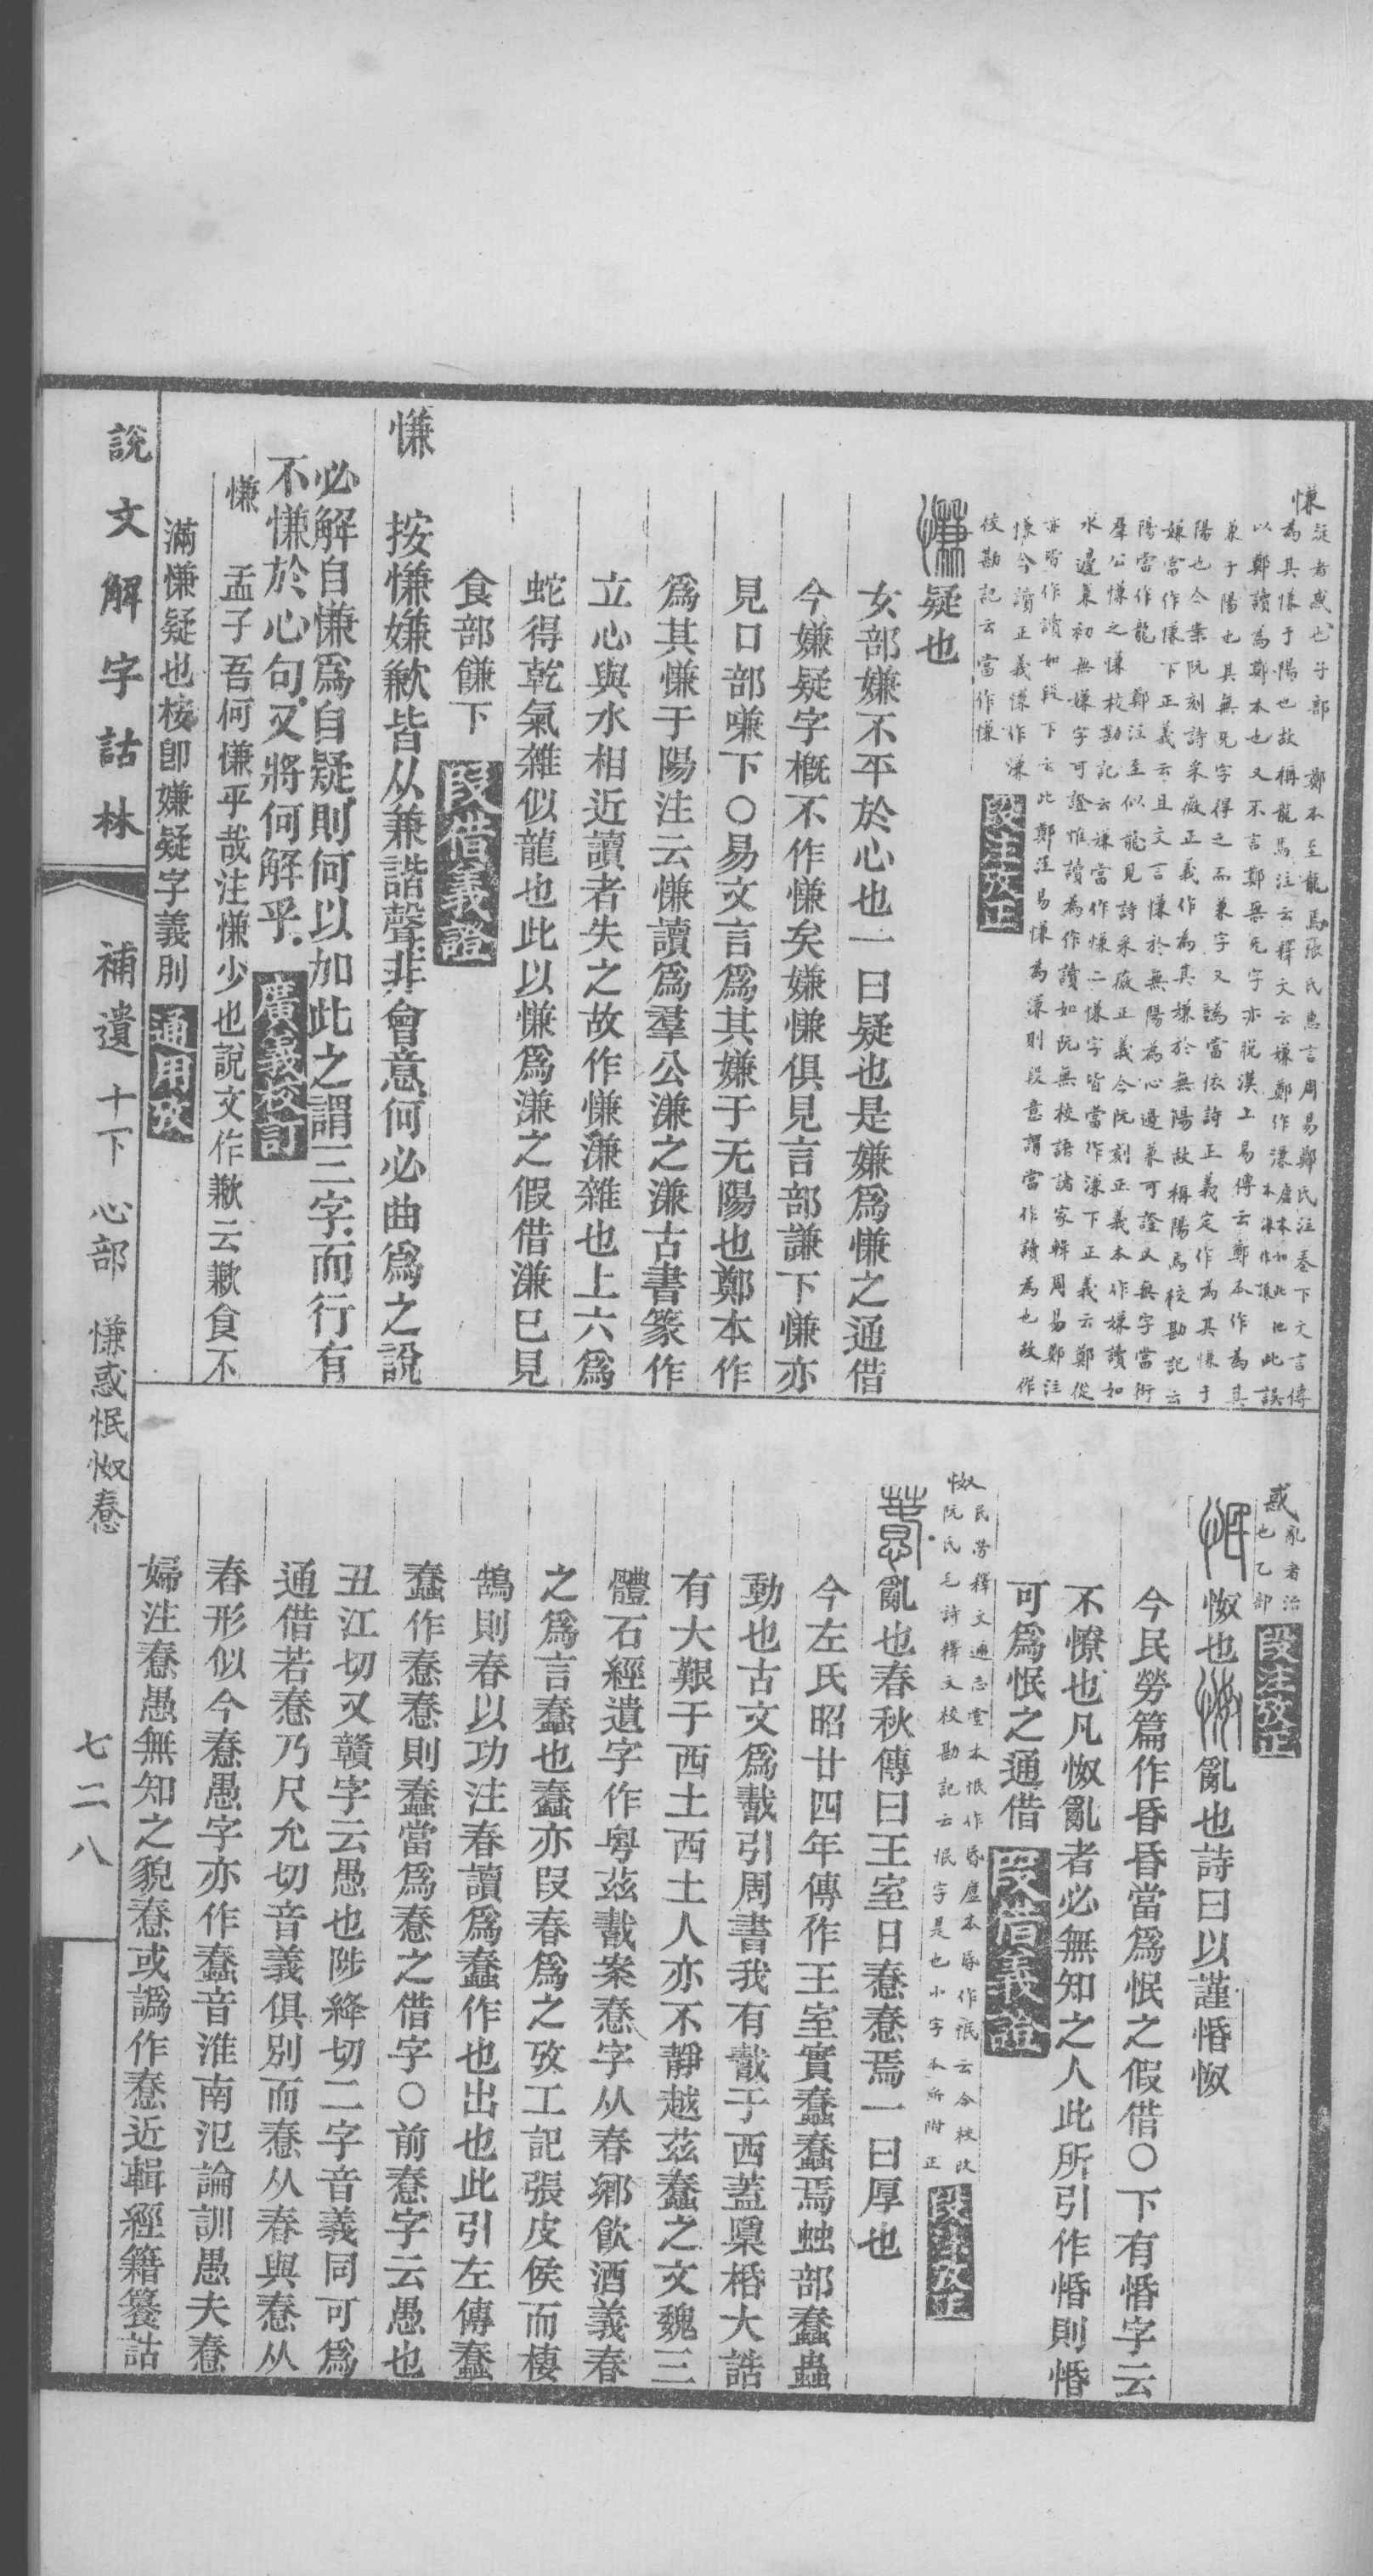 慊
疑者惑也子部 鄭本至龍馬張氏惠言周易鄭氏注卷下文言傳
爲其慊于陽也故稱龍馬注云釋文云嫌鄭作溓
以鄭讀爲鄭本也又不言鄭無无字亦脫漢上易傳云鄭本作爲其
慊于陽也其無无字得之而兼字又譌當依詩正義定作爲其慊于
陽也今案阮刻詩采薇正義作爲其嫌於無陽故稱陽馬校勘記云
嫌當作慊下正義云且文言慊於無陽爲心邊兼可證又無字當衍
陽當作龍 鄭注至似龍見詩采薇正義今阮刻正義本作嫌讀如
羣公慊之慊校勘記云嫌當作慊二慊字皆當作溓下正義云鄭從
水邊兼初無嫌字可證惟讀爲作讀如阮無校語諸家輯周易鄭注
亦皆作讀如段下云此鄭注易慊爲溓則段意謂當作讀爲也故作
慊今讀正義慊作溓
校勘記云當作慊 段注攷正
慊 疑也
女部嫌不平於心也一曰疑也是嫌爲慊之通借
今嫌疑字槪不作慊矣嫌慊俱見言部謙下慊亦
見口部嗛下〇易文言爲其嫌于无陽也鄭本作
爲其慊于陽注云慊讀爲羣公溓之溓古書篆作
立心與水相近讀者失之故作慊溓雜也上六爲
蛇得乾氣雜似龍也此以慊爲溓之假借溓已見
食部鎌下 段借義證
慊 按慊嫌歉皆从兼諧聲非會意何必曲爲之說
必解自慊爲自疑則何以加此之謂三字而行有
不慊於心句又將何解乎 廣義校訂
慊 孟子吾何慊乎哉注慊少也說文作歉云歉食不
滿慊疑也桉卽嫌疑字義別 通用攷
說文解字詁林 補遺 十下 心部 慊惑怋怓惷 七二八
惑
亂者治
也乙部 段注攷正
怋 怓也 亂也詩曰以謹惛怓
今民勞篇作昏昏當爲怋之假借〇下有惛字云
不憭也凡怓亂者必無知之人此所引作惛則惛
可爲怋之通借 段借義證
怓
民勞釋文通志堂本怋作昏盧本昏作怋云今校改
阮氏毛詩釋文校勘記云怋字是也小字本所附正 段注攷正
惷 亂也春秋傳曰王室日惷惷焉一曰厚也
今左氏昭廿四年傳作王室實蠢蠢焉䖵部蠢蟲
動也古文爲𢧢引周書我有𢧢于西蓋𣡌桰大誥
有大艱于西土西土人亦不靜越茲蠢之文魏三
體石經遺字作粤茲𢧢案惷字从春鄉飲酒義春
之爲言蠢也蠢亦叚春爲之攷工記張皮侯而棲
鵠則春以功注春讀爲蠢作也出也此引左傳蠢
蠢作惷惷則蠢當爲惷之借字〇前惷字云愚也
丑江切又贛字云愚也陟絳切二字音義同可爲
通借若惷乃尺允切音義俱別而惷从春與惷从
舂形似今惷愚字亦作蠢音淮南氾論訓愚夫惷
婦注惷愚無知之貌惷或譌作惷近輯經籍籑詁